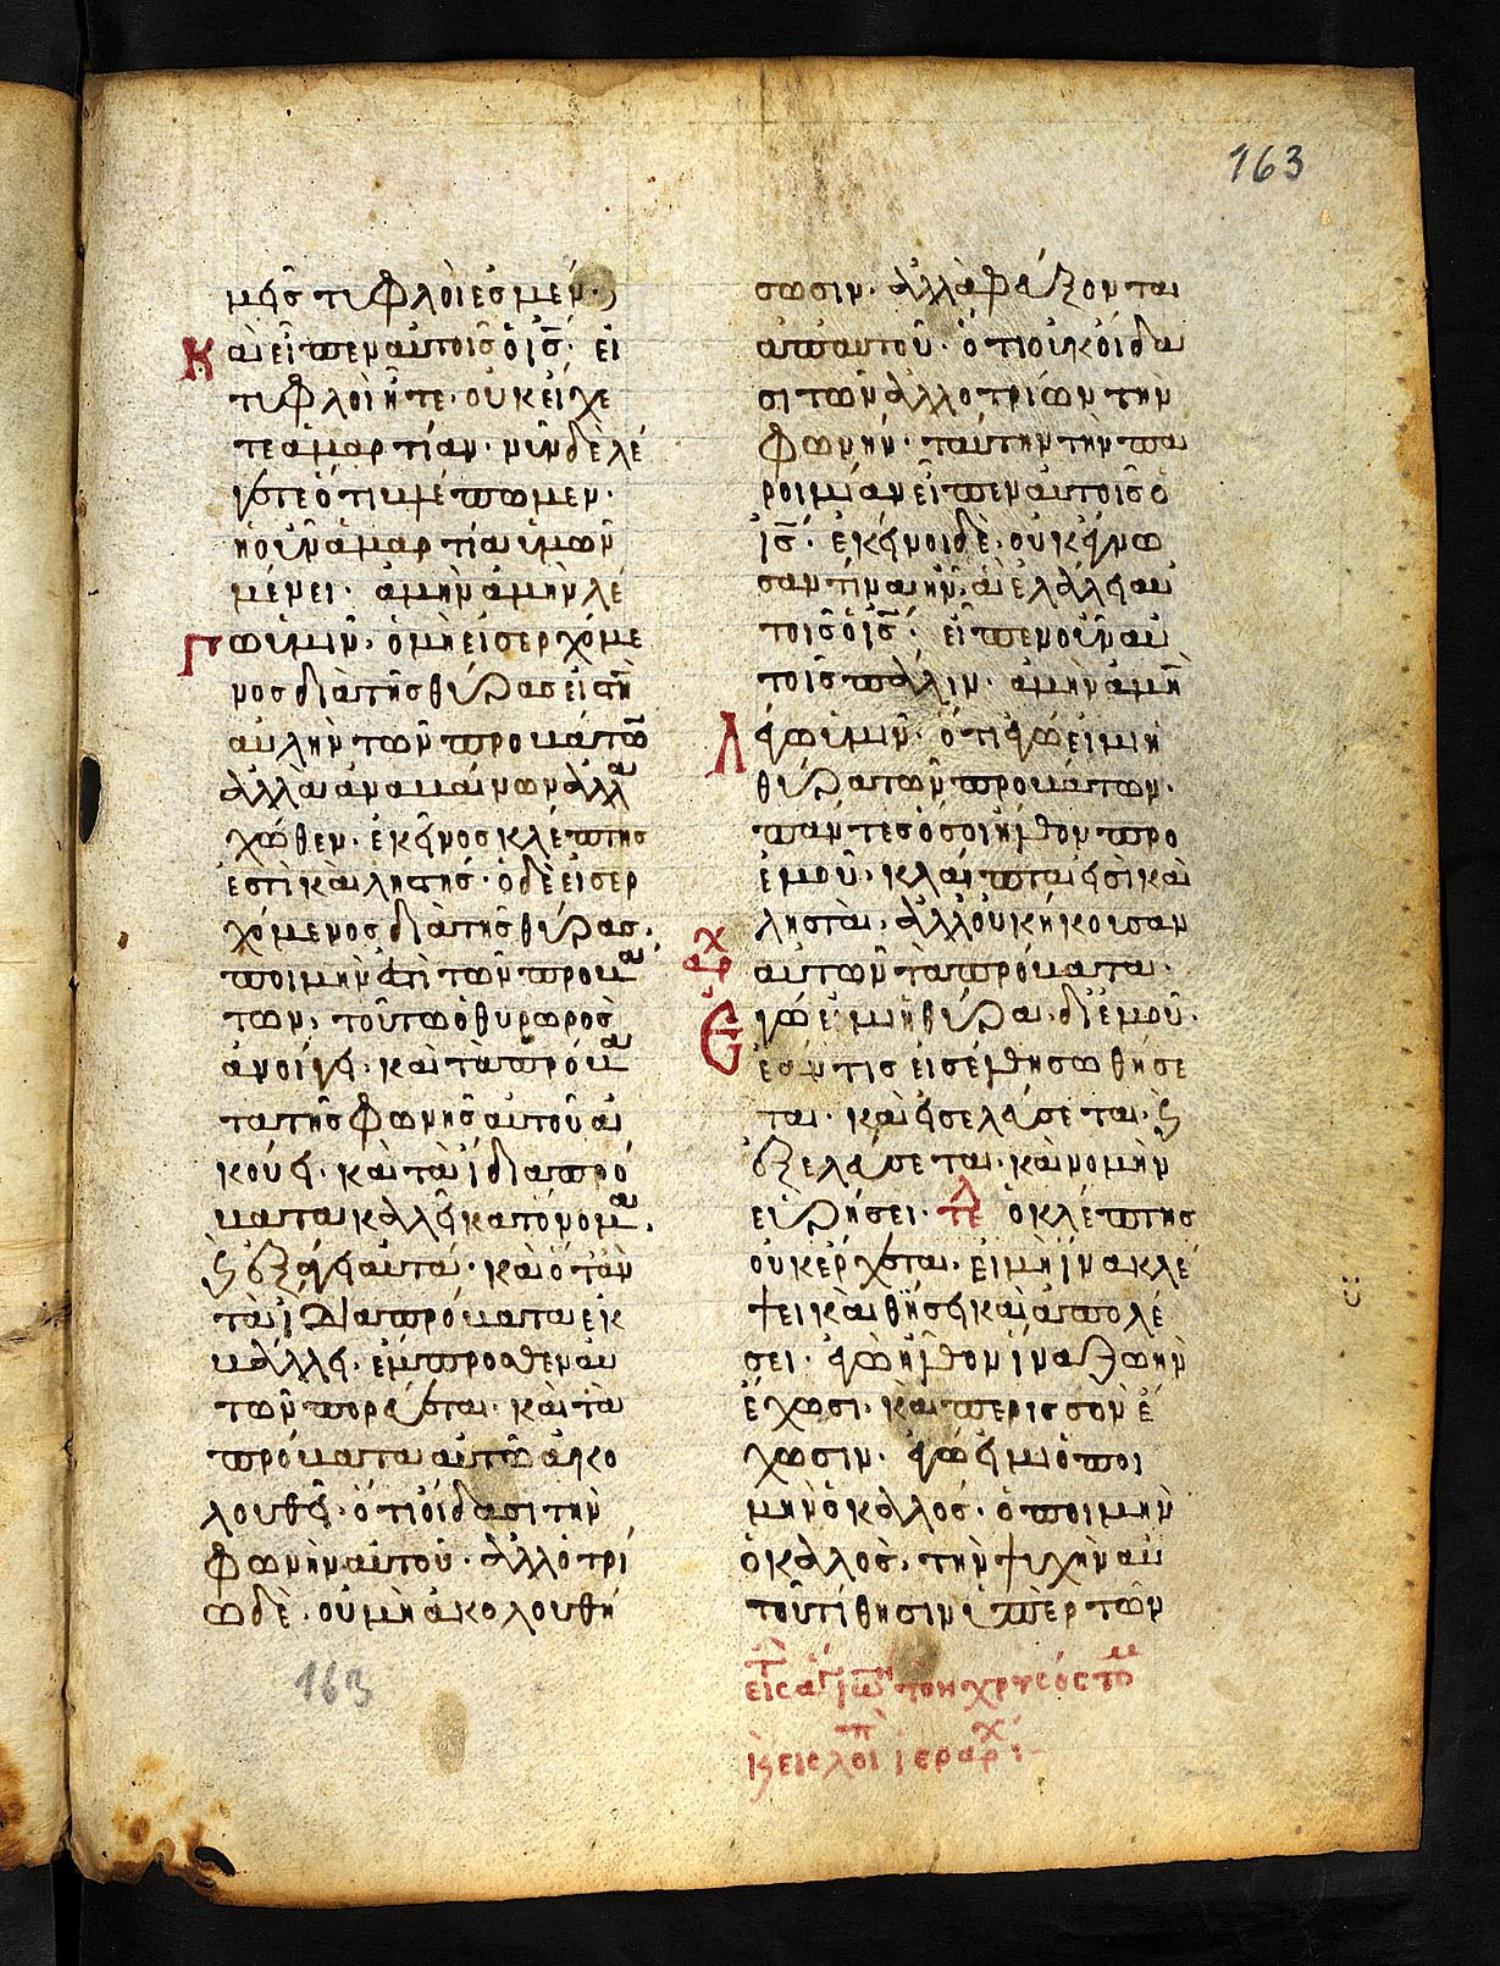 163
μεῖς τυφλοὶ ἐσμέν·
Καὶ εἶπεν αὐτοῖς ὁ ἰς̅· εἰ
τυφλοὶ ἦτε· οὐκ εἴχε
τε ἁμαρτίαν· νῦν δὲ λέ
γετε ὅτι βλέπωμεν·
ἡ οὖν ἁμαρτία ὑμῶν
μένει· ἀμὴν ἀμὴν λέ
Γω ὑμῖν, ὁ μὴ εἰσερχόμε
νος διὰ τῆς θύρας εἰς τὴ̅
αὐλὴν τῶν προβάτω̅
ἀλλὰ ἀναβαίνων ἀλλα
χόθεν· ἐκεῖνος κλέπτης
ἐστὶ καὶ ληστής· ὁ δὲ εἰσερ
χόμενος διὰ τῆς θύρας,
ποιμὴν ἐστὶ τῶν προβά
των, τούτω ὁ θυρωρὸς
ἀνοίγει· καὶ τὰ πρόβα
τα τῆς φωνῆς αὐτοῦ ἀ
κούει· καὶ τὰ ἴδια πρό
βατα καλεῖ κατ' ὄνομα,
ϗ ἐξάγει αὐτά· καὶ ὅταν
τὰ ἴδια πρόβατα ἐκ
βάλλει· ἔμπροσθεν αὐ
τῶν πορεύεται· καὶ τὰ
πρόβατα αὐτῶ ἀκο
λουθεῖ· ὅτι οἴδασι τὴν
φωνὴν αὐτοῦ· ἀλλοτρί
ω δὲ· οὐ μὴ ἀκολουθή
163
σωσιν· ἀλλὰ φεύξονται
ἀπ' αὐτοῦ· ὅτι οὐκ οἴδα
σι τῶν ἀλλοτρίων τὴν
φωνήν· ταύτην τὴν πα
ροιμίαν εἶπεν αὐτοῖς ὁ
ἰς̅· ἐκεῖνοι δὲ· οὐκ ἔγνω
σαν τίνα ἦν, ἃ ἐλάλει αὐ
τοῖς ὁ ἰς̅· εἶπεν οὖν αὐ
τοῖς πάλιν· ἀμὴν ἀμὴ̅
Λέγω ὑμῖν· ὅτι ἐγώ εἰμι ἡ
θύρα τῶν προβάτων·
πάντες ὅσοι ἦλθον πρὸ
ἐμοῦ, κλέπται εἰσὶ καὶ
λησταί, ἀλλ' οὐκ ἤκουσαν
αὐτῶν τὰ πρόβατα·
αρχ
Ἐγώ εἰμι ἡ θύρα· δι' ἐμοῦ·
ἐάν τις εἰσέλθη σωθήσε
ται· καὶ εἰσελεύσεται· ϗ
ἐξελεύσεται· καὶ νομὴν
εὑρήσει· τελ ὁ κλέπτης
οὐκ ἔρχεται, εἰ μὴ ἵνα κλέ
ψει καὶ θύσει καὶ ἀπολέ
σει· ἐγὼ ἦλθον ἵνα ζωὴν
ἔχωσι, καὶ περισσὸν ἔ
χωσιν· ἐγώ εἰμι ὁ ποι
μὴν ὁ καλλός· ὁ ποιμὴν
ὁ καλλὸς, τὴν ψυχὴν αὐ
τοῦ τίθησιν ὑπὲρ τῶν
εἰς τ̀ ἁγ ἰω̅ τὸν χρυσόστομ
ϗ εἰς λοιπ ἱεραρχ